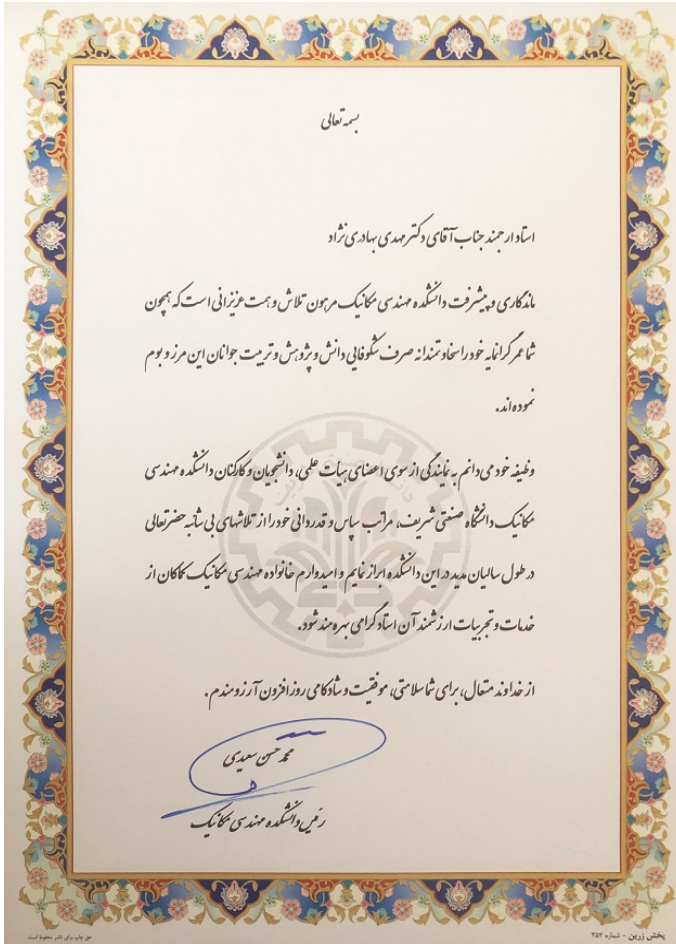 بسمه تعالی
استاد ارجمند جناب آقای دکتر مهدی بهادری نژاد
ماندگاری و پیشرفت دانشکده مهندسی مکانیک مرهون تلاش و همت عزیزانی است که همچون
شما عمر گرانمایه خود را سخاوتمندانه صرف شکوفایی دانش و پژوهش و تربیت جوانان این مرز و بوم
نموده‌اند.
وظیفه خود می‌دانم به نمایندگی از سوی اعضای هیأت علمی، دانشجویان و کارکنان دانشکده مهندسی
مکانیک دانشگاه صنعتی شریف، مراتب سپاس و قدردانی خود را از تلاشهای بی شائبه حضرتعالی
در طول سالیان مدید در این دانشکده ابراز نمایم و امیدوارم خانواده مهندسی مکانیک کماکان از
خدمات و تجربیات ارزشمند آن استاد گرامی بهره‌مند شود.
از خداوند متعال، برای شما سلامتی، موفقیت و شادکامی روزافزون آرزومندم.
محمد حسن سعیدی
رئیس دانشکده مهندسی مکانیک
پخش زرین - شماره ۲۵۲
حق چاپ برای ناشر محفوظ است